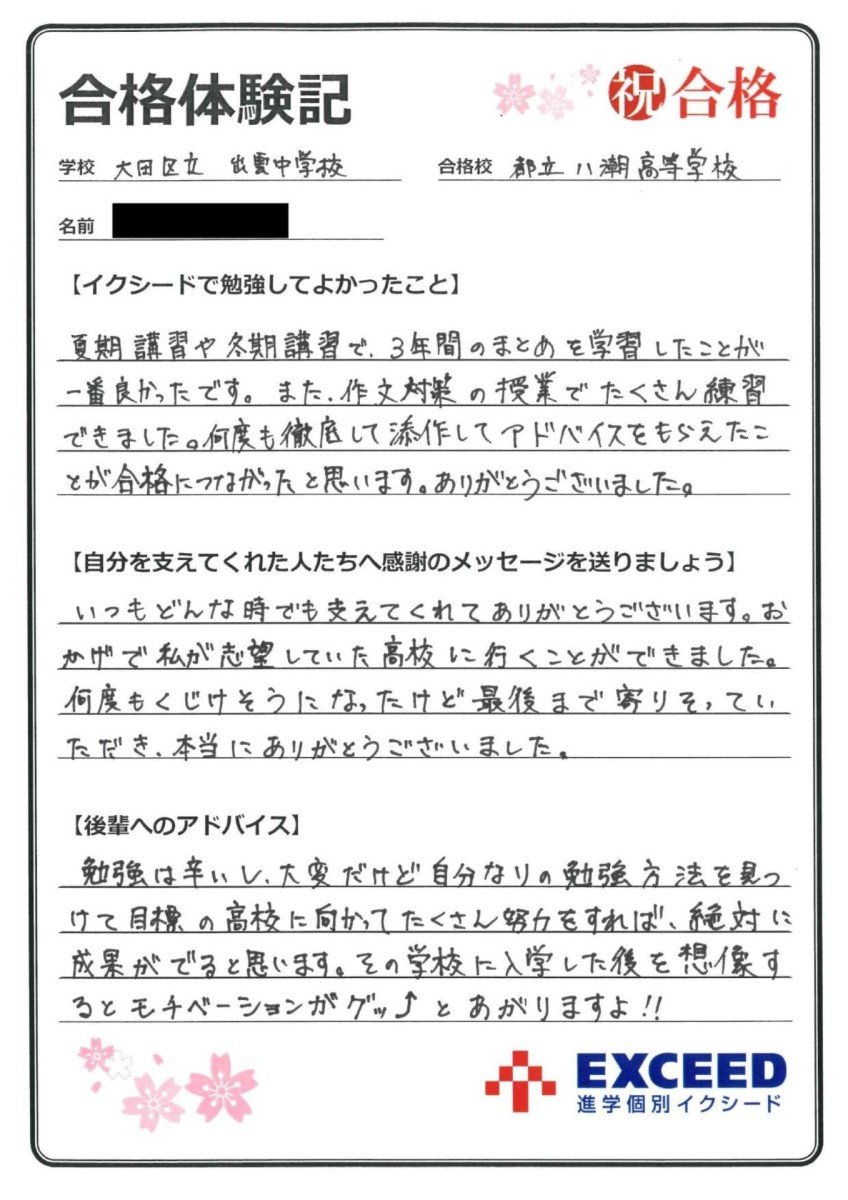 合格体験記
祝 合格
学校 大田区立 出雲中学校
合格校 都立 八潮高等学校
名前
【イクシードで勉強してよかったこと】
夏期講習や冬期講習で、3年間のまとめを学習したことが
一番良かったです。また、作文対策の授業でたくさん練習
できました。何度も徹底して添作してアドバイスをもらえたこ
とが合格につながったと思います。ありがとうございました。
【自分を支えてくれた人たちへ感謝のメッセージを送りましょう】
いつもどんな時でも支えてくれてありがとうございます。お
かげで私が志望していた高校に行くことができました。
何度もくじけそうになったけど最後まで寄りそってい
ただき、本当にありがとうございました。
【後輩へのアドバイス】
勉強は辛いし、大変だけど自分なりの勉強方法を見つ
けて目標の高校に向かってたくさん努力をすれば、絶対に
成果がでると思います。その学校に入学した後を想像す
るとモチベーションがグッ⤴とあがりますよ!!
EXCEED
進学個別イクシード